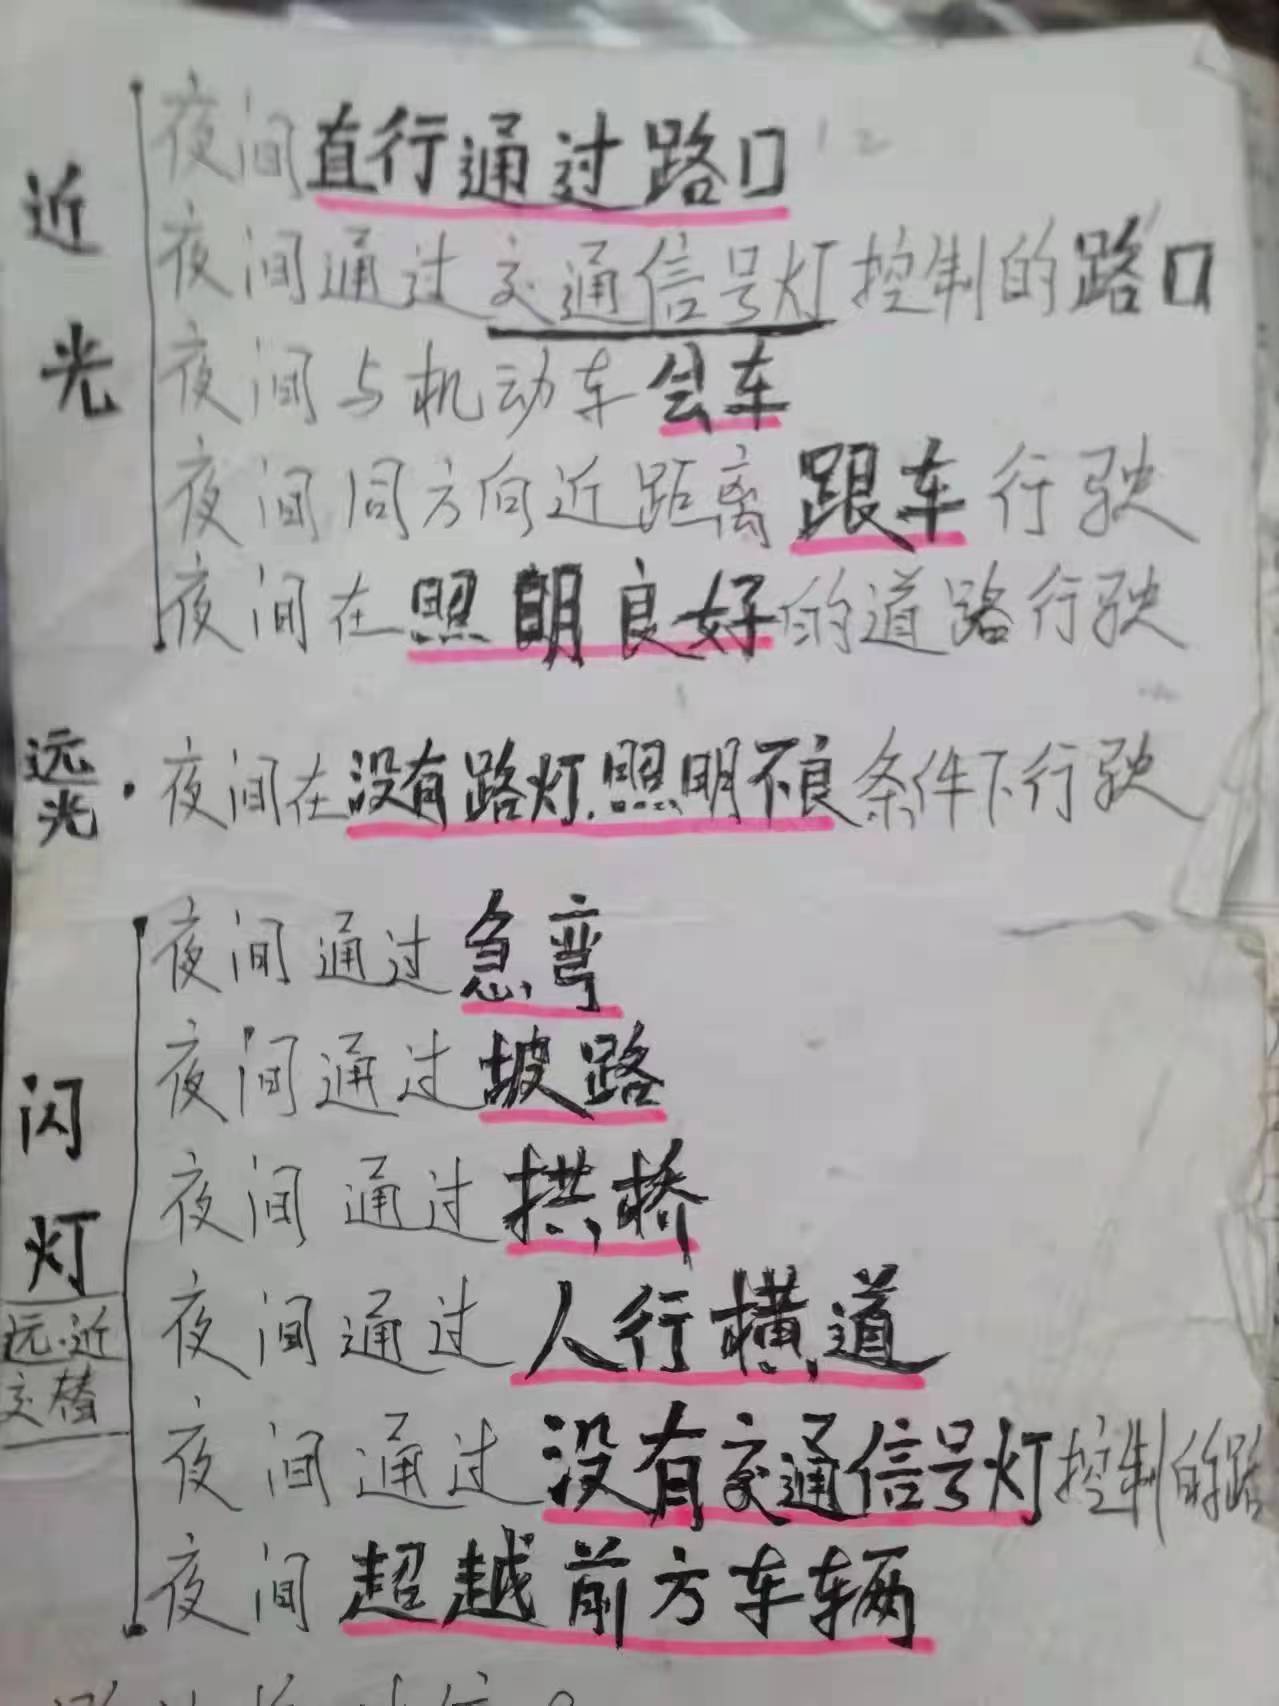 近光
夜间直行通过路口
夜间通过交通信号灯控制的路口
夜间与机动车会车
夜间同方向近距离跟车行驶
夜间在照明良好的道路行驶
远光·夜间在没有路灯.照明不良条件下行驶
闪灯
远.近
交替
夜间通过急弯
夜间通过坡路
夜间通过拱桥
夜间通过人行横道
夜间通过没有交通信号灯控制的路
夜间超越前方车辆